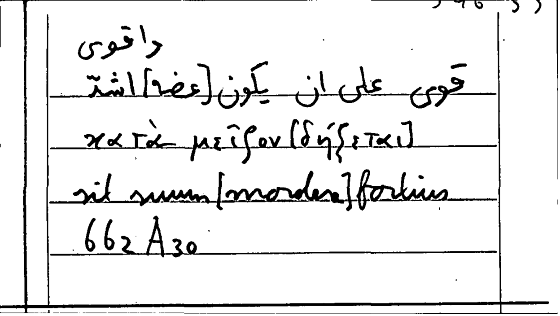 واقوى
قوى على ان يكون [عضه] اشدّ
κατὰ μεῖζον [δήξεται]
sit suum [mordere] fortius
662 A 30